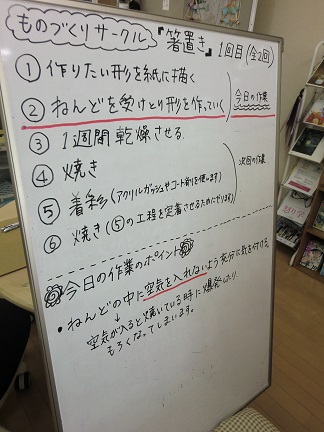 ものづくりサークル『箸置き』1回目(全2回)
① 作りたい形を紙に描く
② ねんどを受けとり形を作っていく
今日の作業
③ 1週間乾燥させる
④ 焼き
⑤ 着彩(アクリルガッシュやコート剤を使います)
次回の作業
⑥ 焼き(⑤の工程を定着させるためにやります)
今日の作業のポイント
・ねんどの中に空気を入れないよう充分に気を付ける。
↓
空気が入ると焼いている時に爆発したり
もろくなってしまいます。